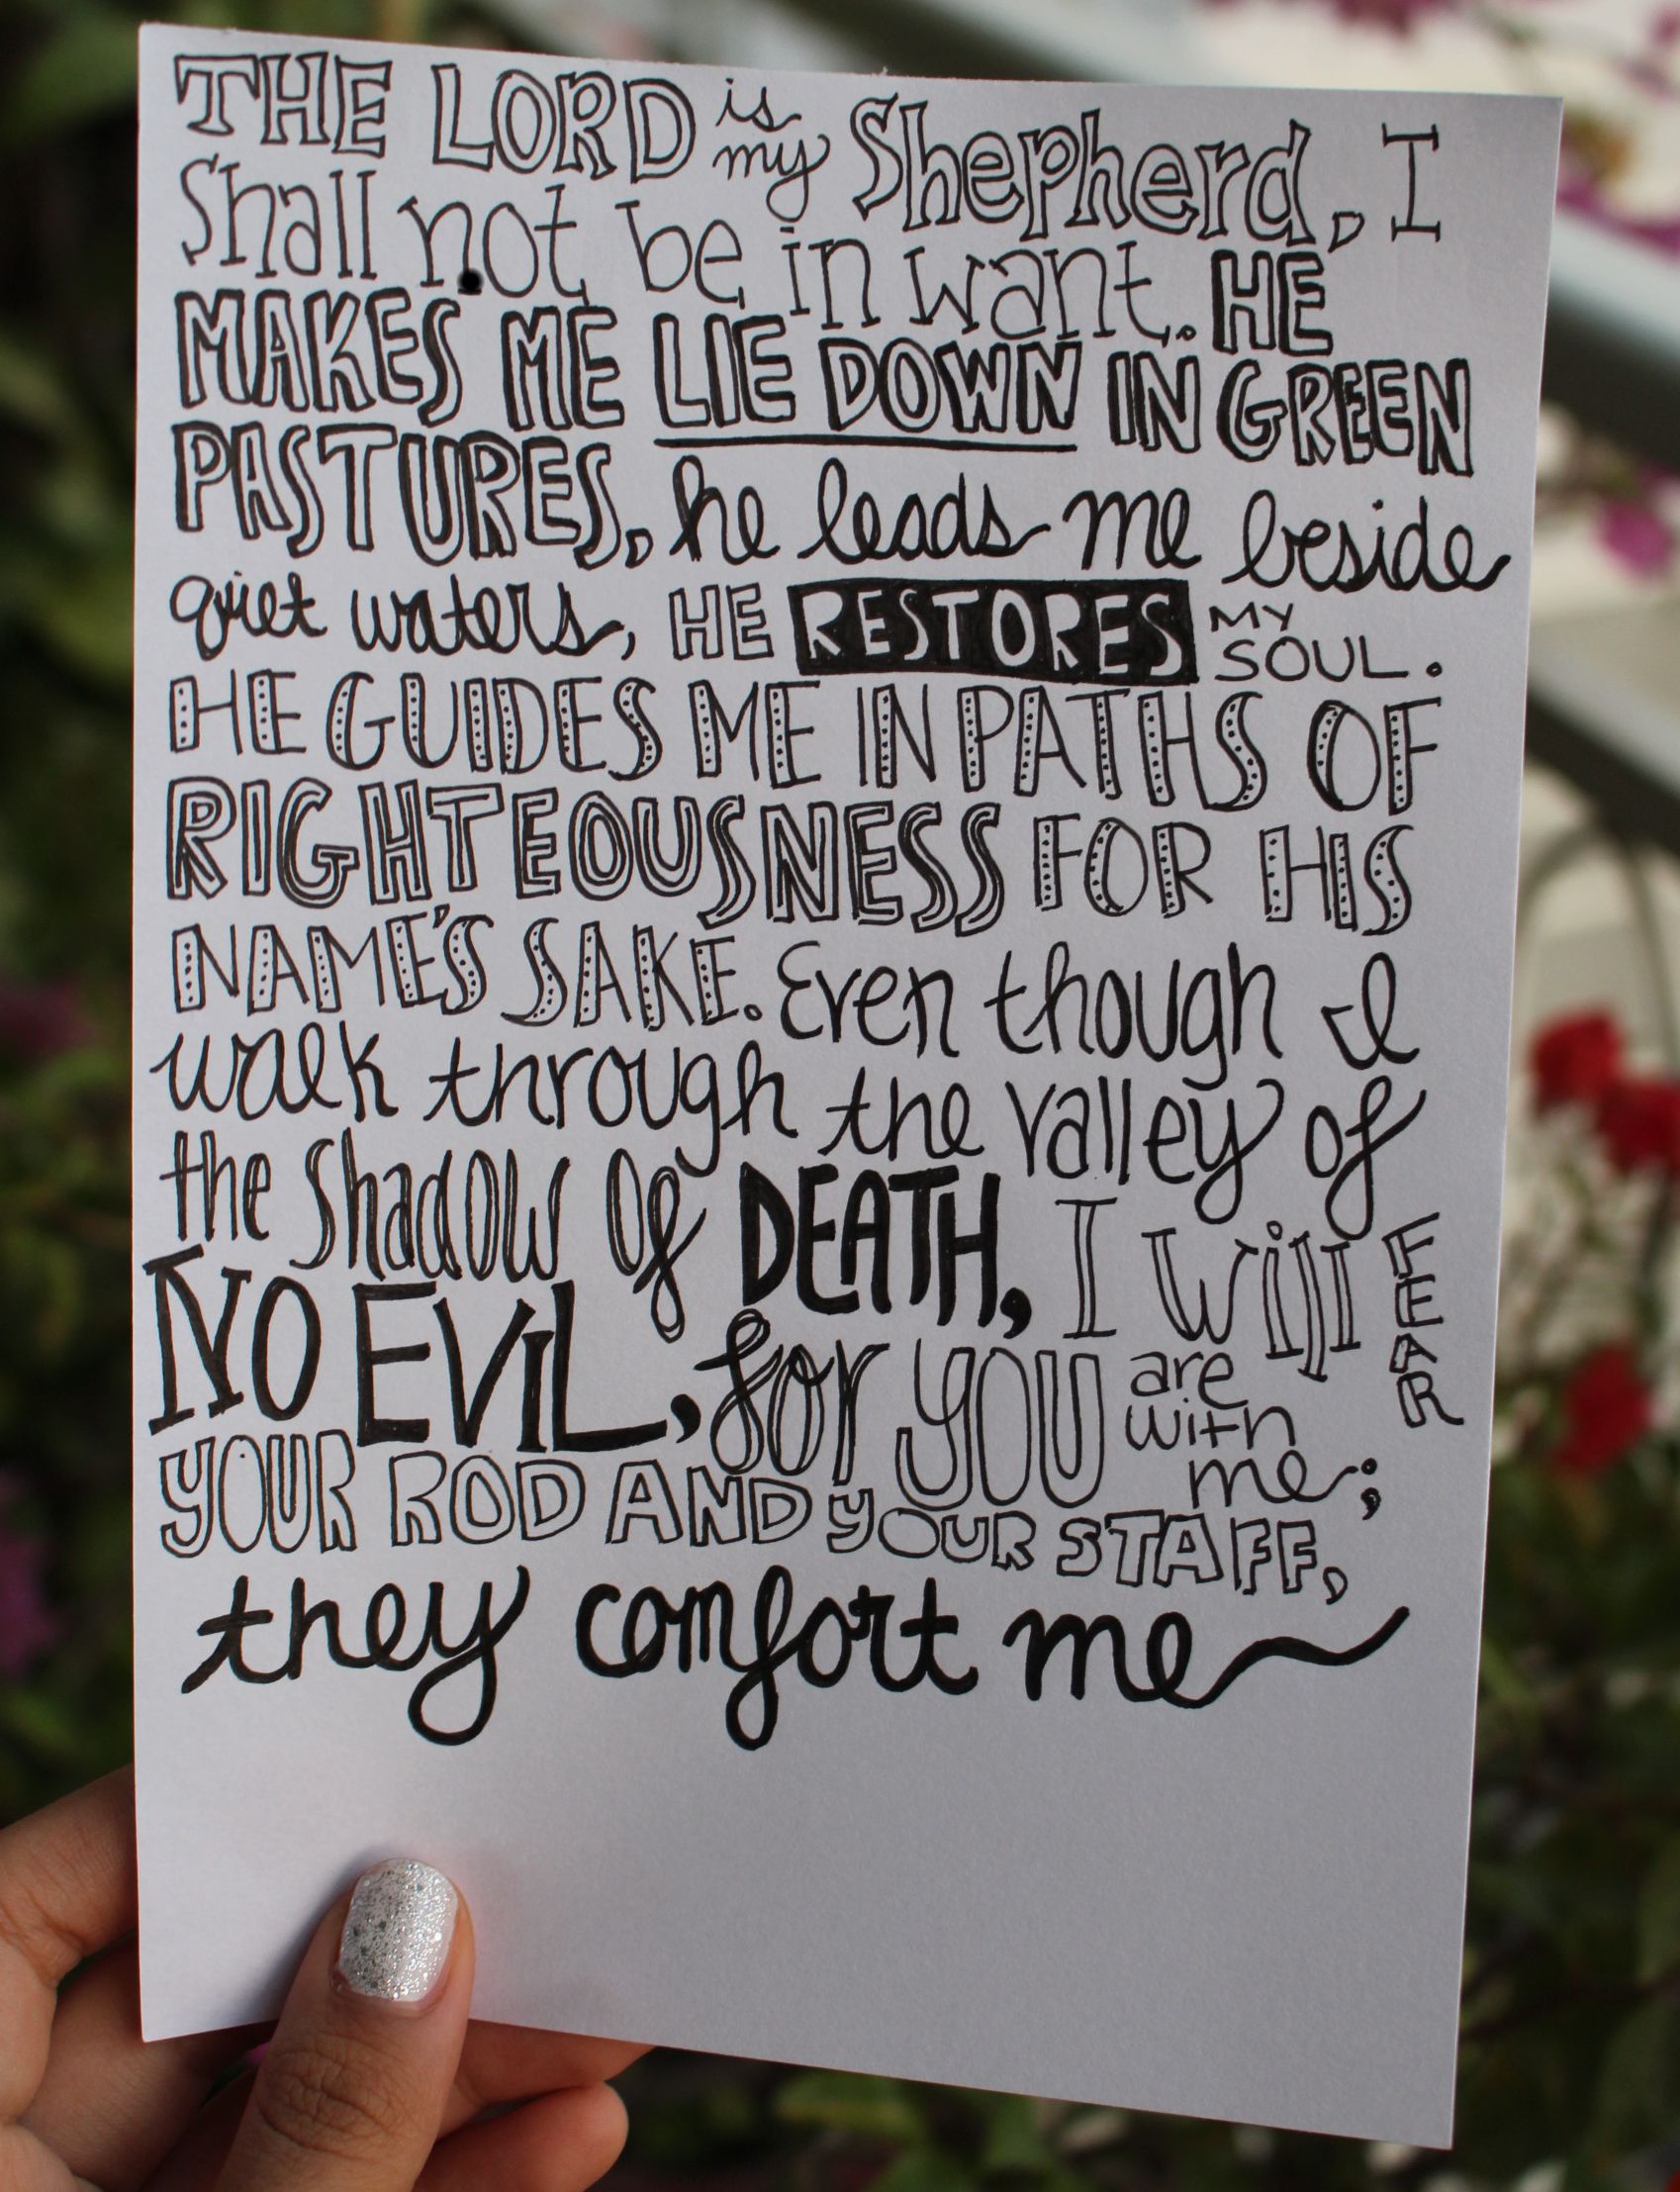 THE LORD is my Shepherd, I
Shall not be in want. HE
MAKES ME LIE DOWN IN GREEN
PASTURES, he leads me beside
quiet waters, HE RESTORES MY SOUL.
HE GUIDES ME IN PATHS OF
RIGHTEOUSNESS FOR HIS
NAME'S SAKE. Even though I
walk through the valley of
the Shadow Of DEATH, I Will FEAR
NO EVIL, for YOU are with me;
YOUR ROD AND YOUR STAFF,
they comfort me